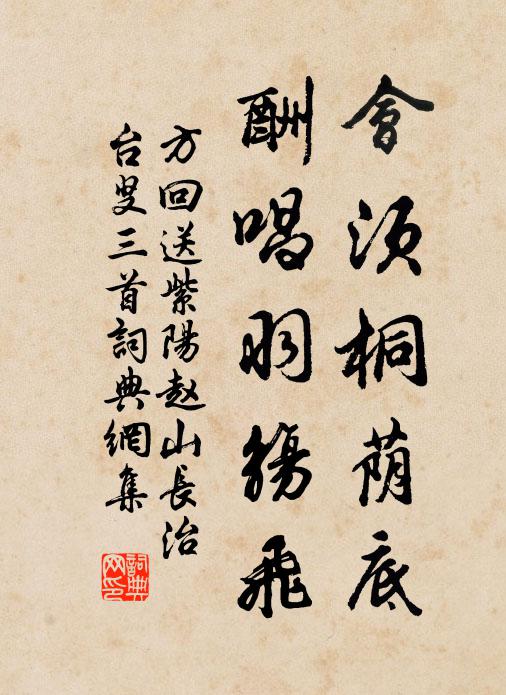 會須桐荫底
酬唱羽觴飛
方回送紫陽赵山長治
台叟三首詞典網集
詞典网印